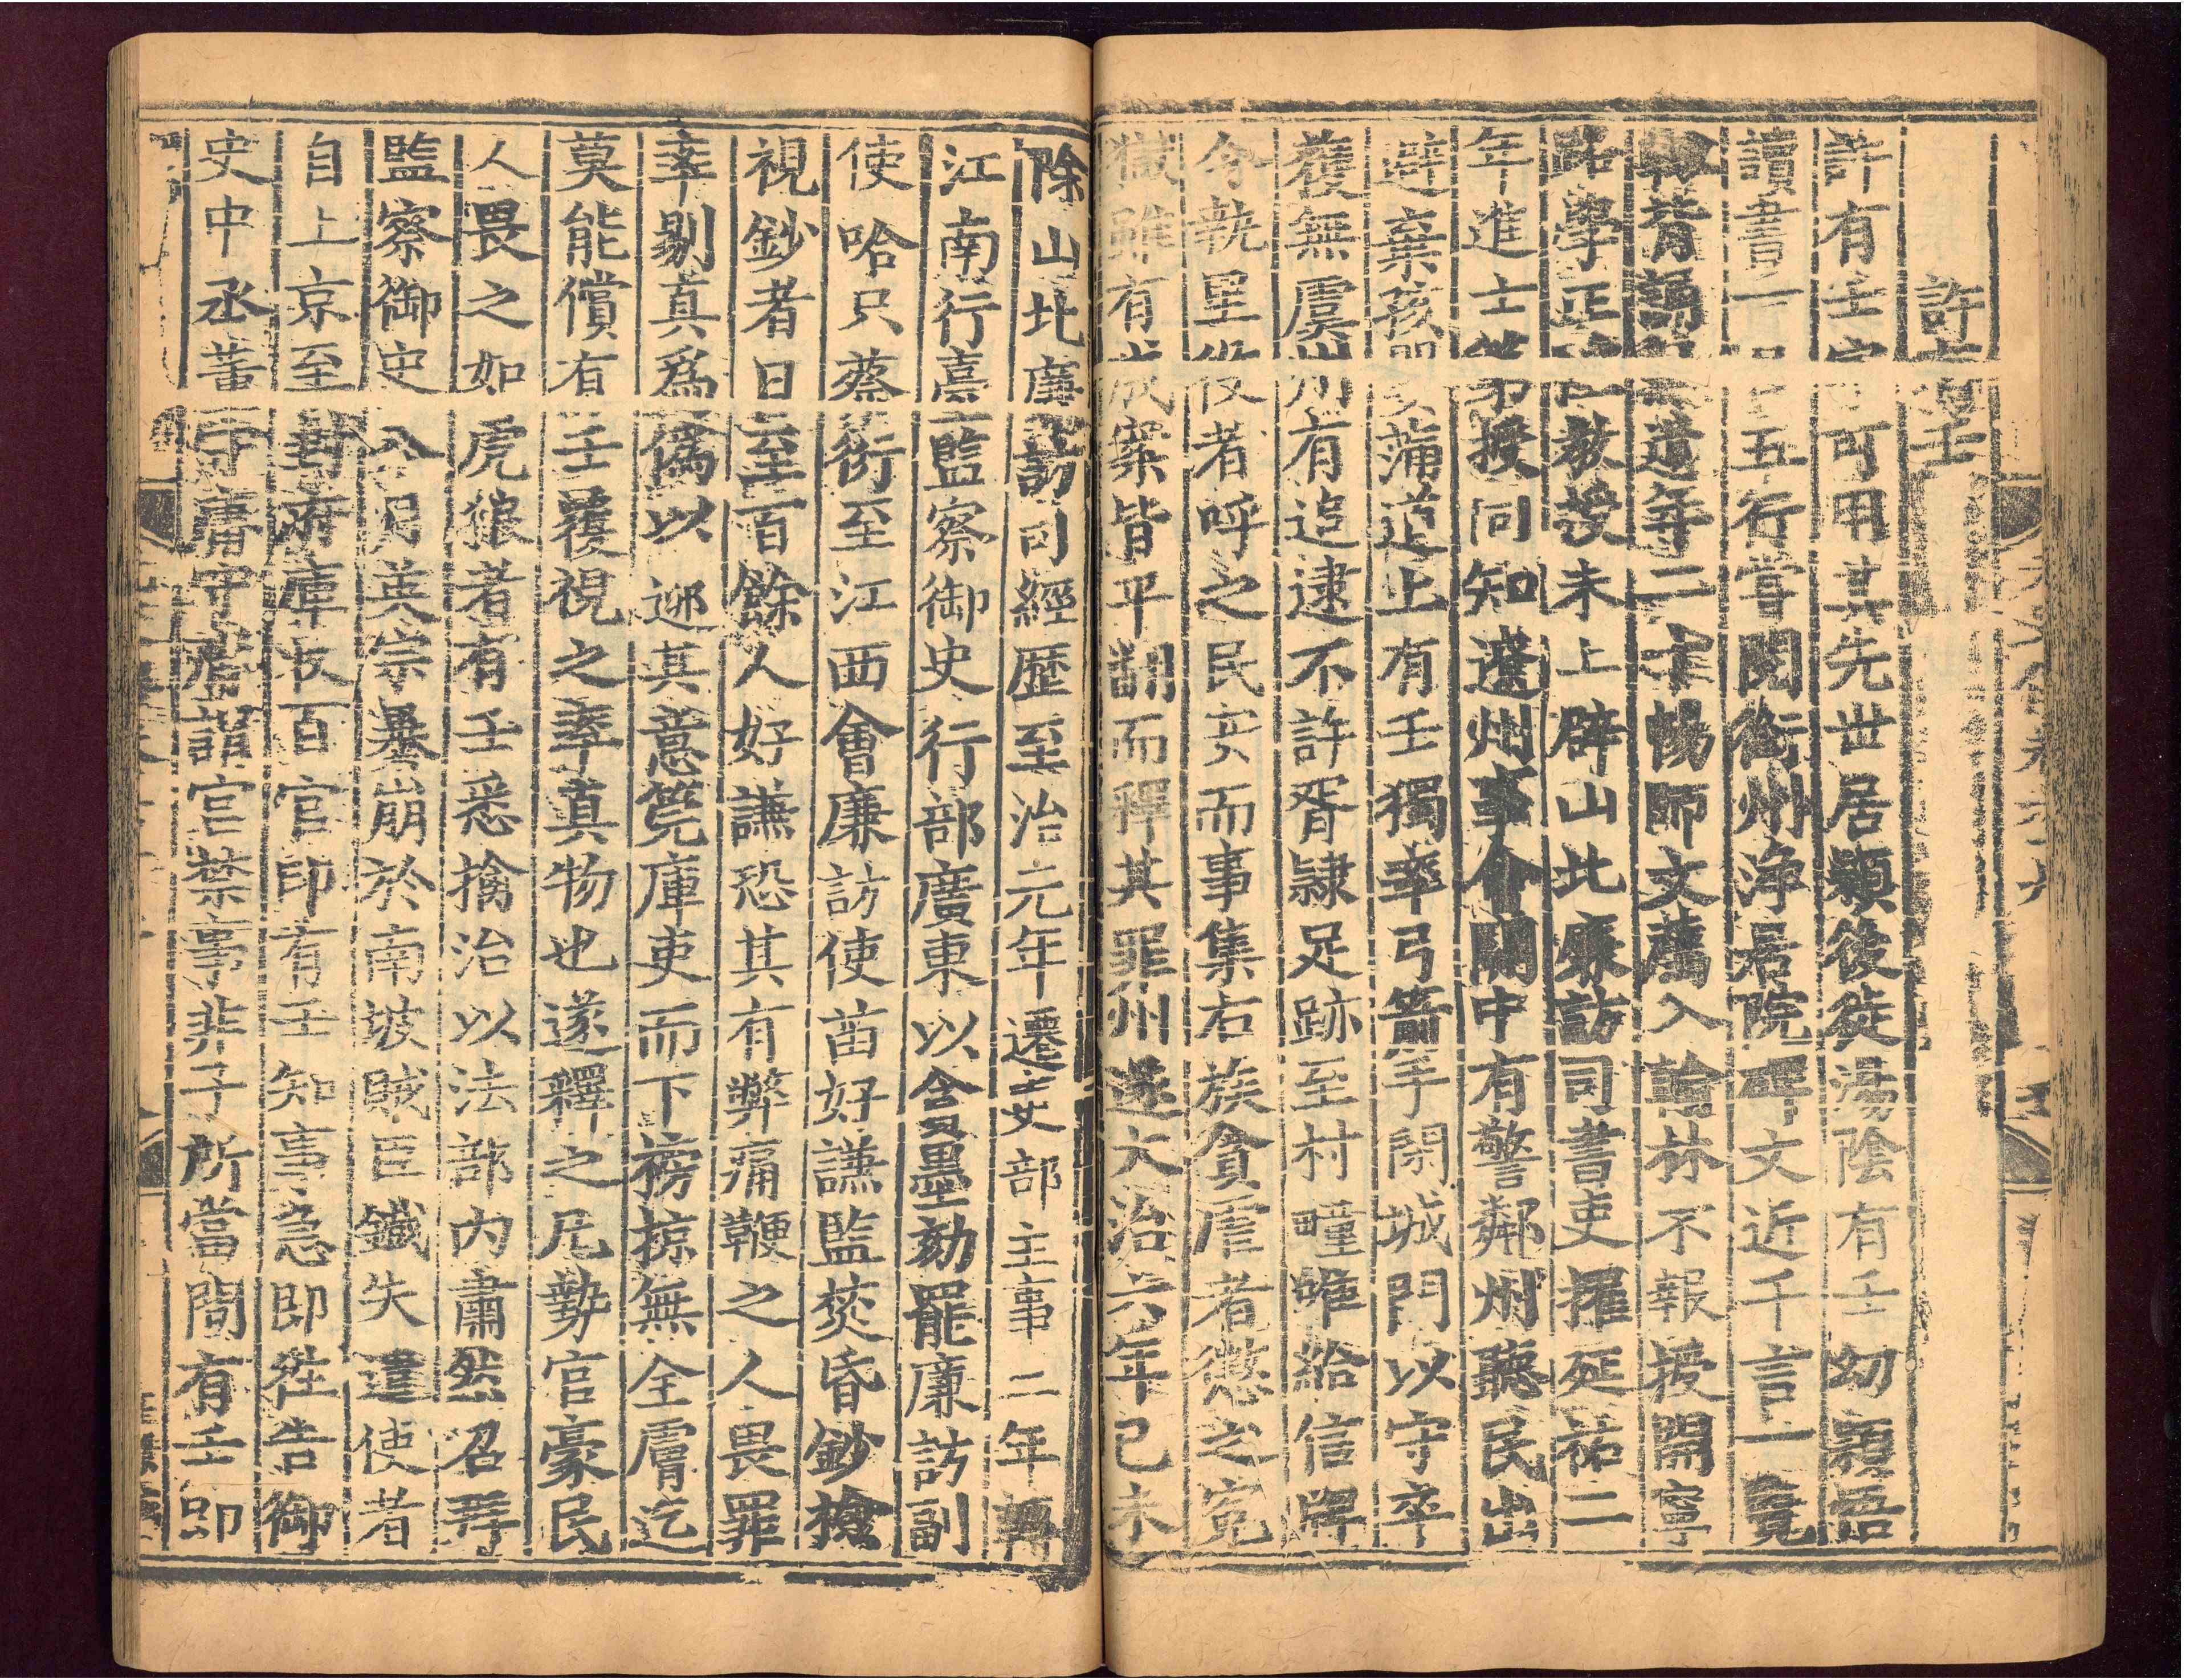 許有壬
許有壬字可用其先世居潁後徙湯陰有壬幼穎悟
讀書一目五行嘗閱衡州淨居院碑文近千言一覽
輒背誦無遺年二十暢師文薦入翰林不報授開寧
路學正陞教授未上辟山北廉訪司書吏擢延祐二
年進士第授同知遼州事會關中有警鄰州聽民出
避棄孩嬰滿道上有壬獨率弓箭手閉城門以守卒
獲無虞州有追逮不許胥隸足跡至村疃唯給信牌
令執里役者呼之民安而事集右族貪虐者懲之冤
獄雖有成案皆平翻而釋其罪州遂大治六年己未
除山北廉訪司經歷至治元年遷吏部主事二年轉
江南行臺監察御史行部廣東以貪墨劾罷廉訪副
使哈只蔡衍至江西會廉訪使苗好謙監焚昏鈔檢
視鈔者日至百餘人好謙恐其有弊痛鞭之人畏罪
率剔真爲僞以迎其意筦庫吏而下搒掠無全膚迄
莫能償有壬覆視之率真物也遂釋之凡勢官豪民
人畏之如虎狼者有壬悉擒治以法部内肅然召拜
監察御史八月英宗暴崩於南坡賊臣鐵失遣使者
自上京至封府庫收百官印有壬知事急即往告御
史中丞董守庸守庸謂宮禁事非子所當問有壬即